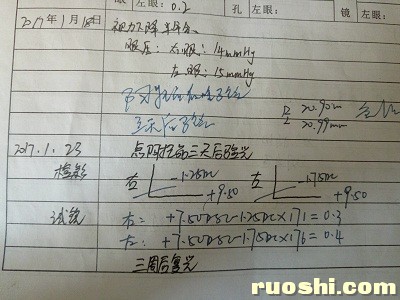 眼 左眼: 0.2 孔 左眼: 镜 左眼:
2017年1月18日 视力下降半年余.
眼压: 右眼: 14mmHg
左眼: 15mmHg
20.90mm
20.99mm
2017.1.23 点阿托品三天后复光
检影 右 -1.25DC +9.50 左 -1.75DC +9.50
试镜 右: +7.50DS/-1.25DC×171=0.3
左: +7.50DS/-1.75DC×176=0.4
三周后复光
ruoshi.com